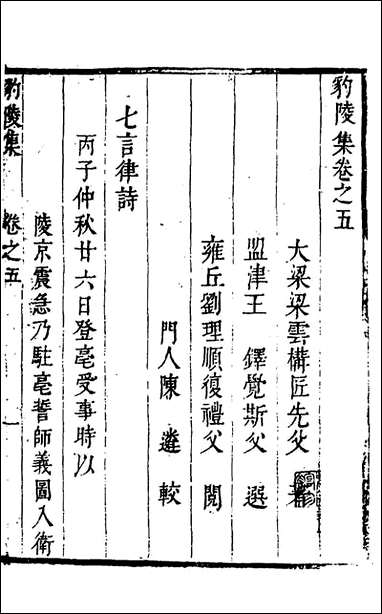 豹陵集卷之五
大梁梁雲構匠先父著
盟津王 鐸覺斯父 選
雍丘劉理順復禮父 閱
門人陳 遴 較
七言律詩
丙子仲秋廿六日登亳受事時以
陵京震急乃駐亳誓師義圖入衛
豹陵集 卷之五 一